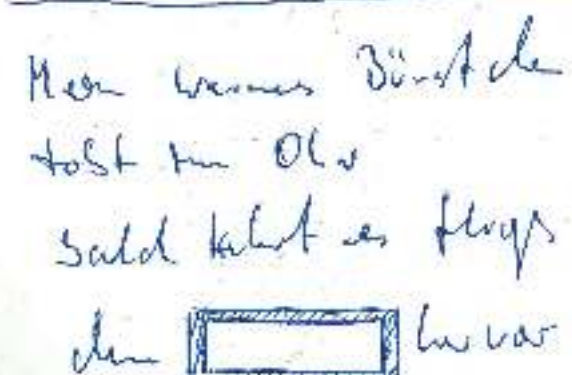 Mein warmes Bürstchen
tobt im Ohr
bald kehrt es flugs
den hervor